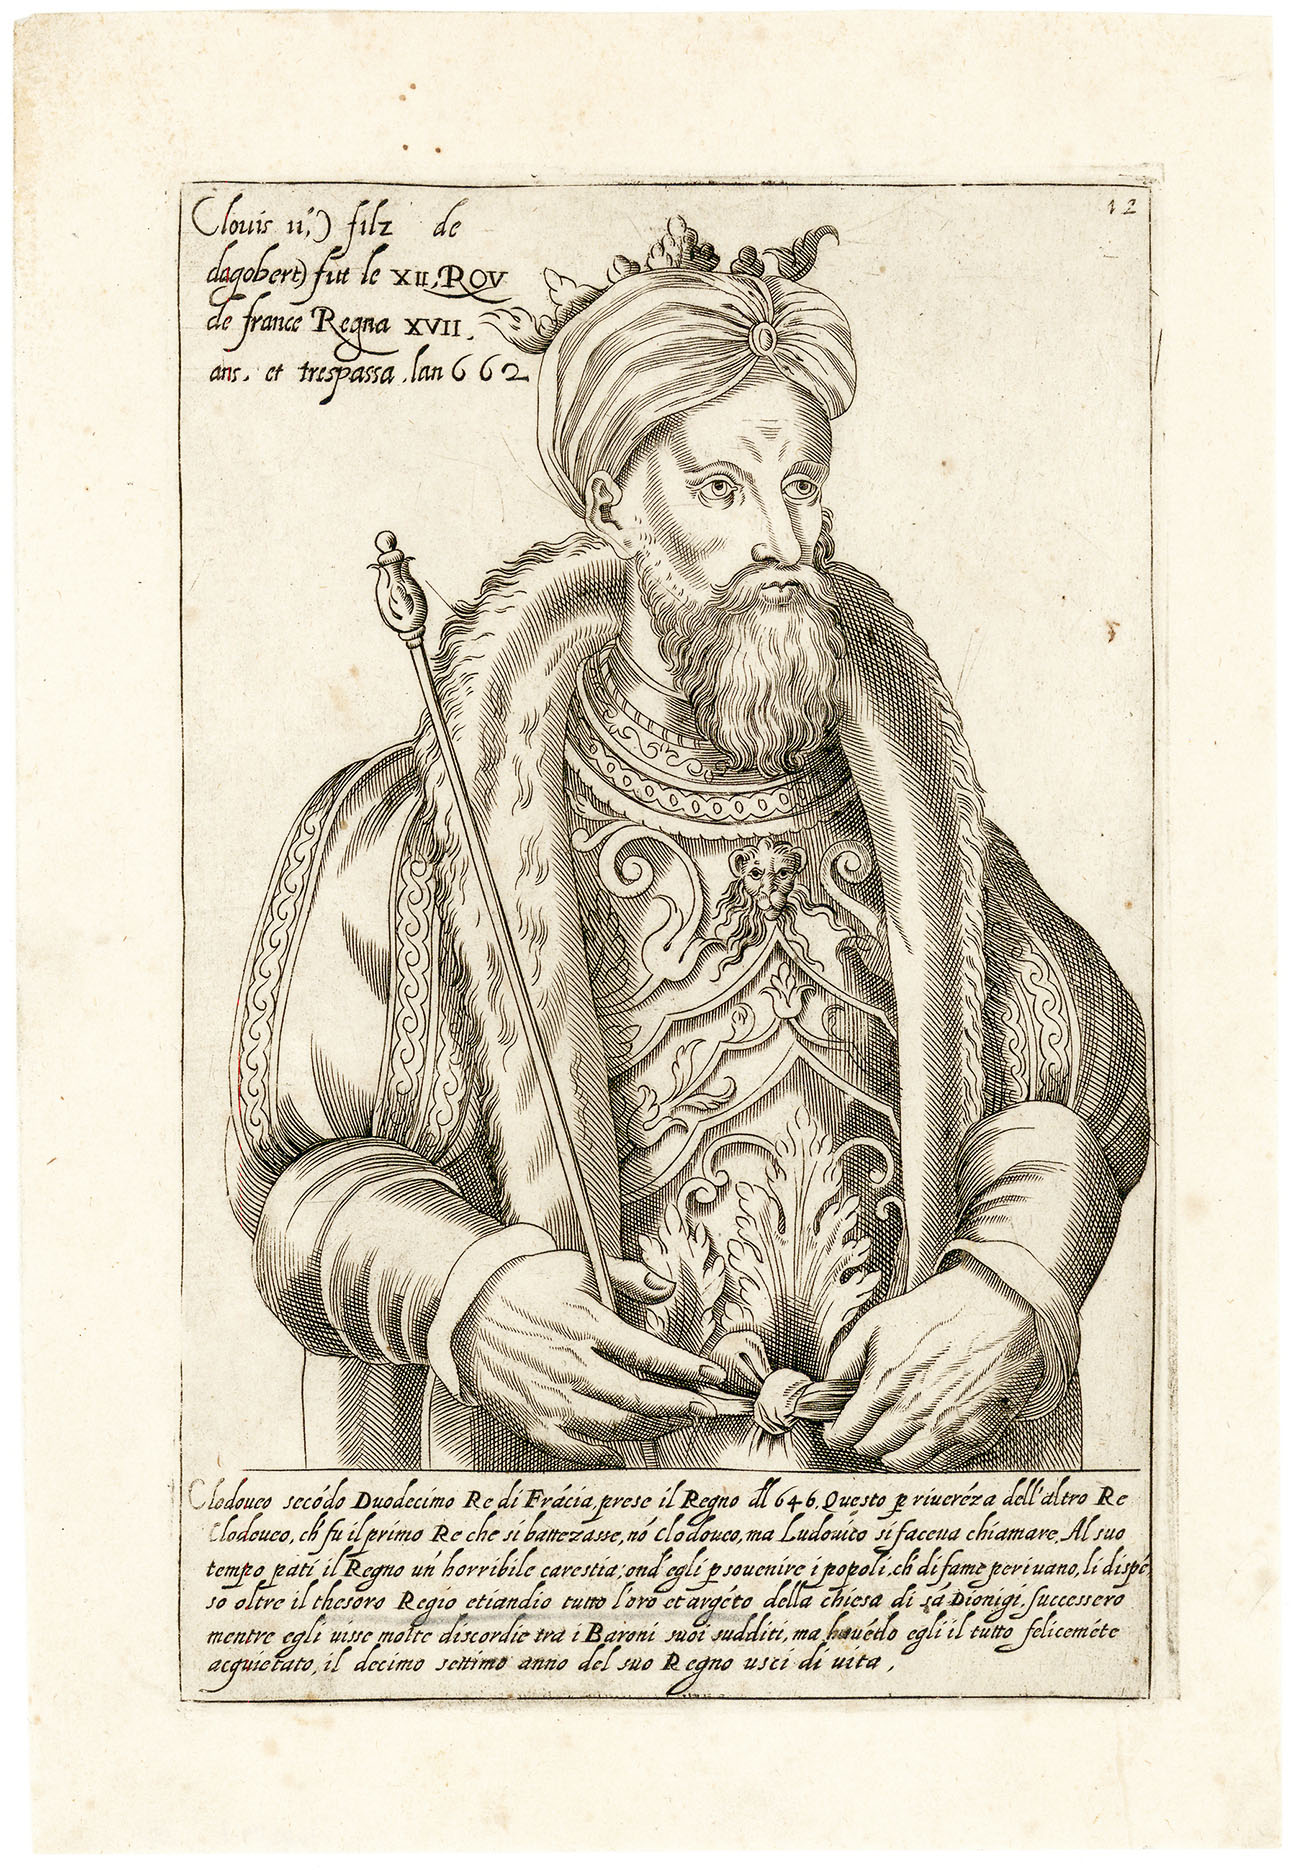 12
Clouis 11,) filz de
dagobert) fut le XII, ROY
de france Regna XVII.
ans, et trespassa, lan 662
Clodoueo secódo Duodecimo Re di Frácia, prese il Regno dl 646. Questo p riueréza dell'altro Re
Clodoueo, ch' fu il primo Re che si battezasse, nó clodoueo, ma Ludouico si faceua chiamare. Al suo
tempo patì il Regno un' horribile carestia; ond' egli p souenire i popoli, ch' di fame periuano, li dispé
so oltre il thesoro Regio etiandio tutto l'oro et argéto della chiesa di sá Dionigi, successero
mentre egli uisse molte discordie tra i Baroni suoi sudditi, ma hauédo egli il tutto feliceméte
acquietato, il decimo settimo anno del suo Regno usci di uita,